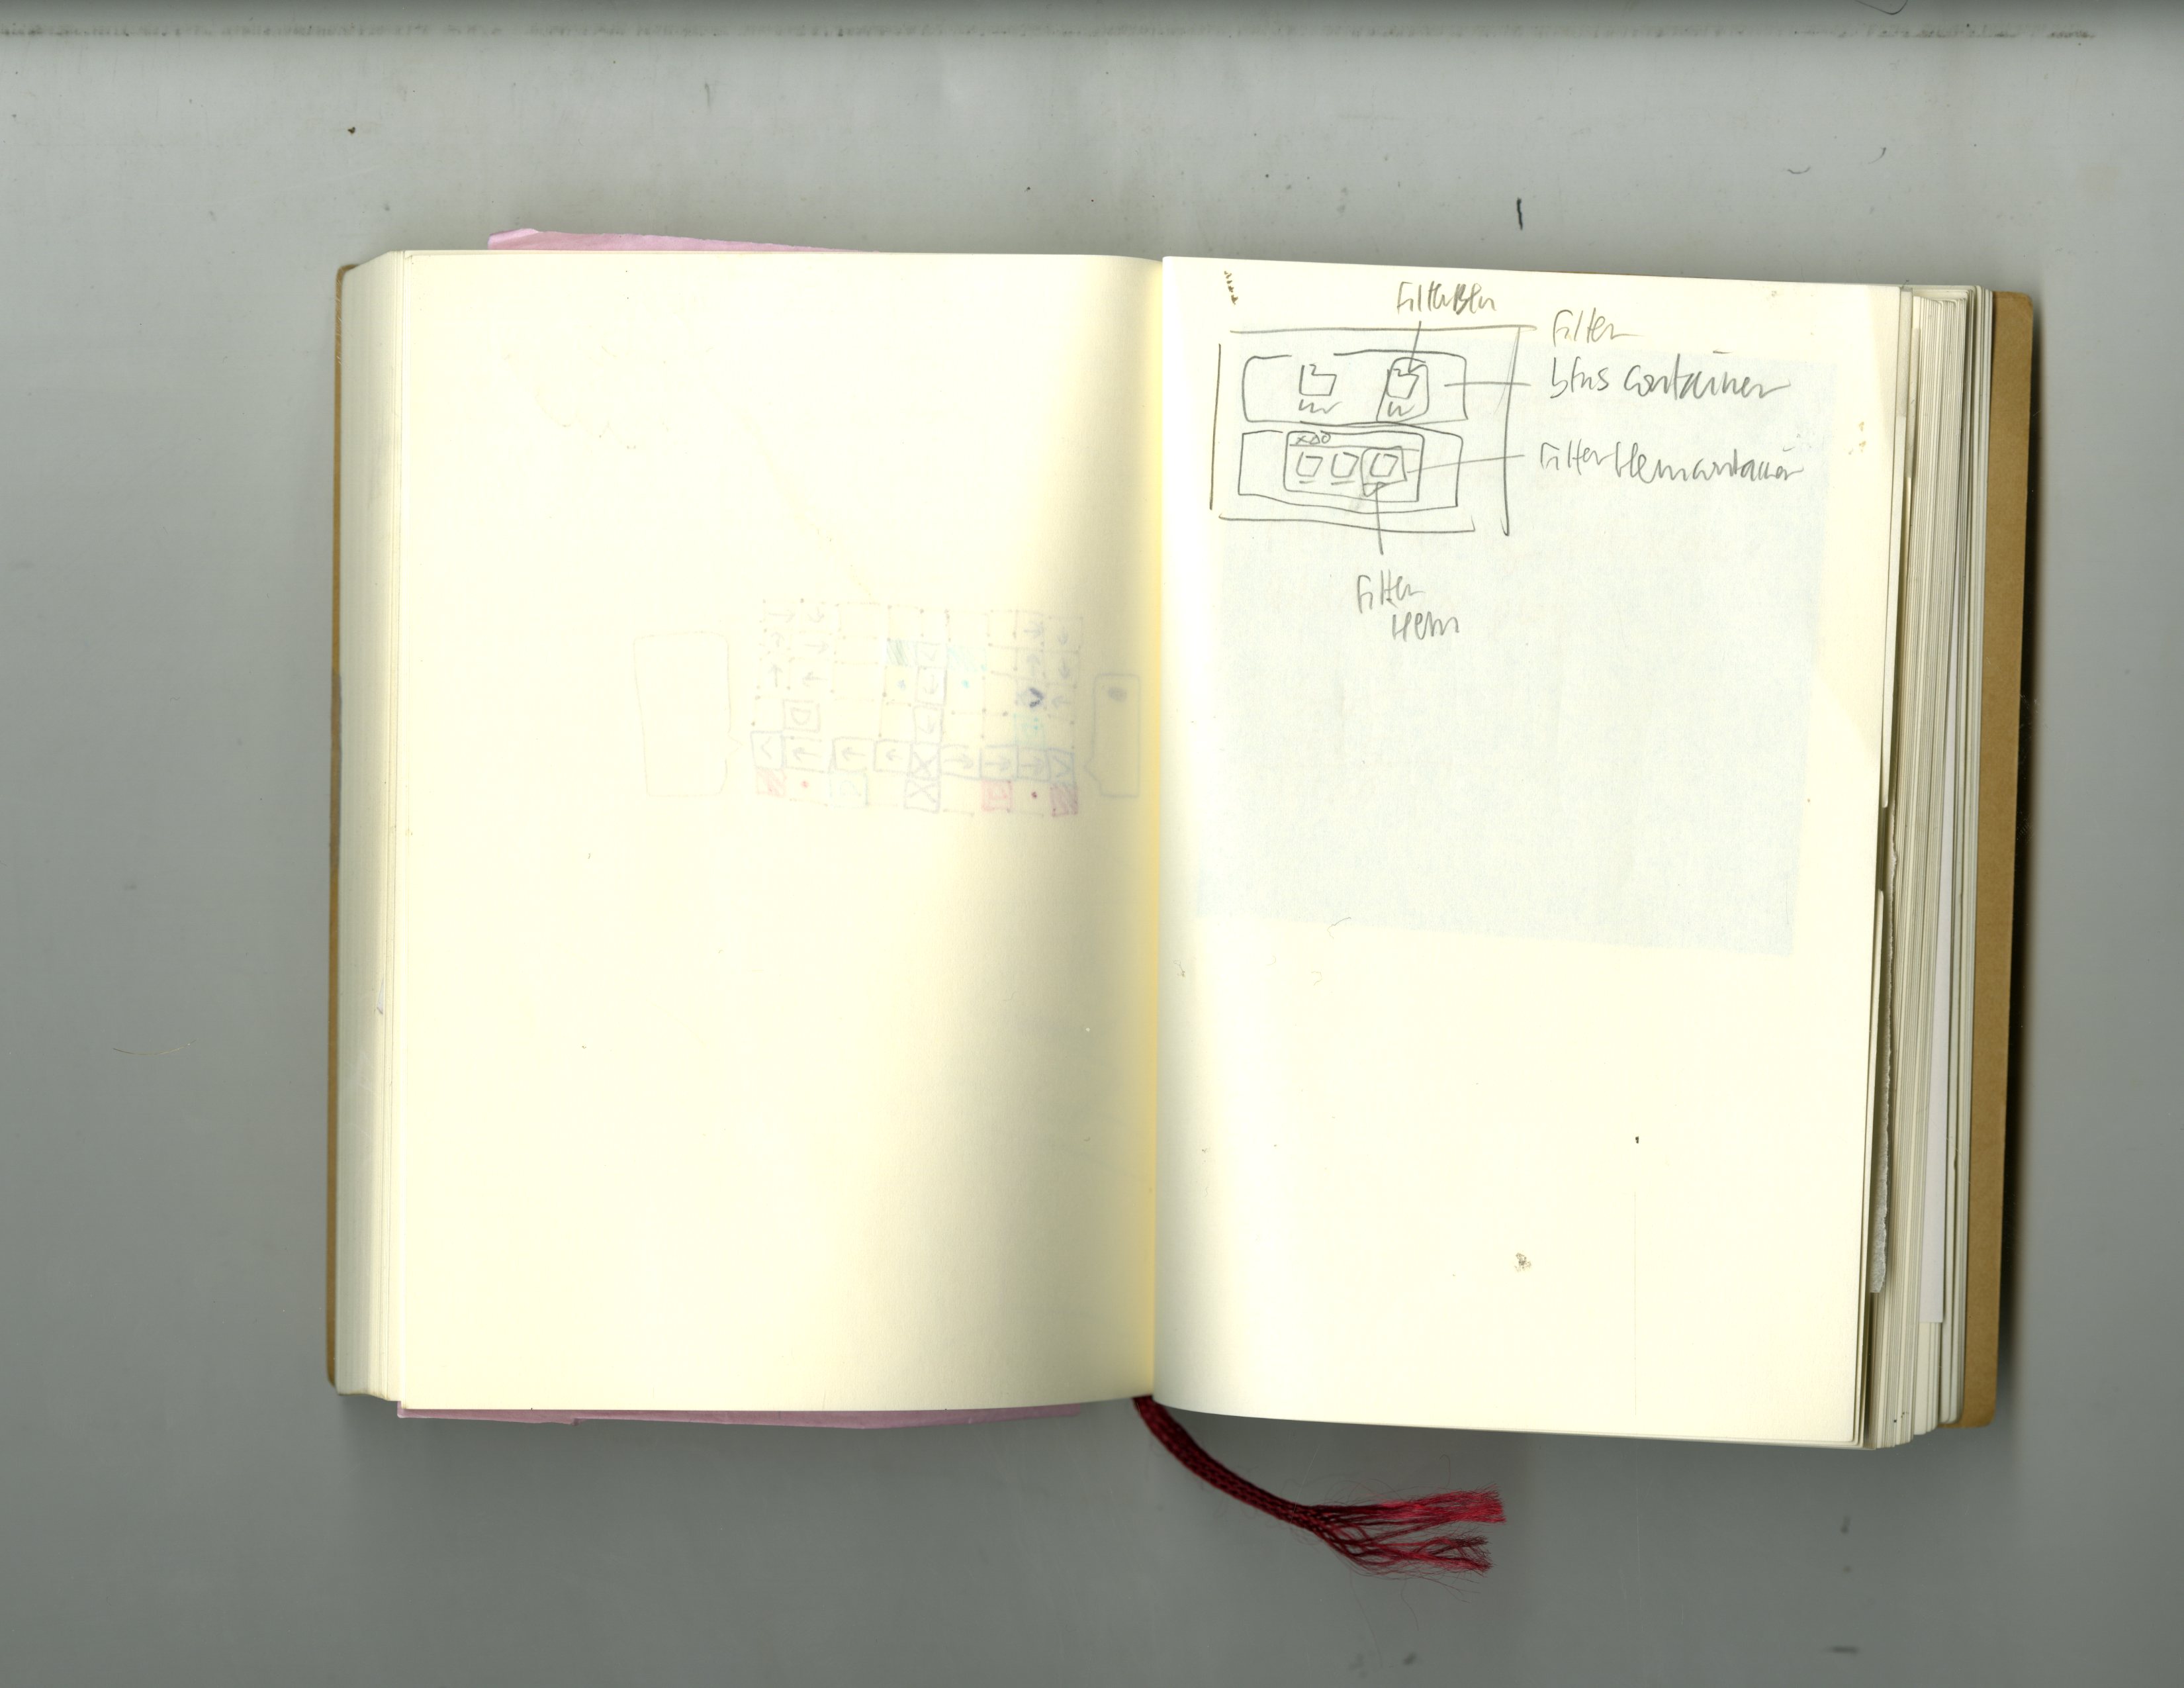 FilterBtn
Filter
btns container
FilterItemcontainer
Filter
Item